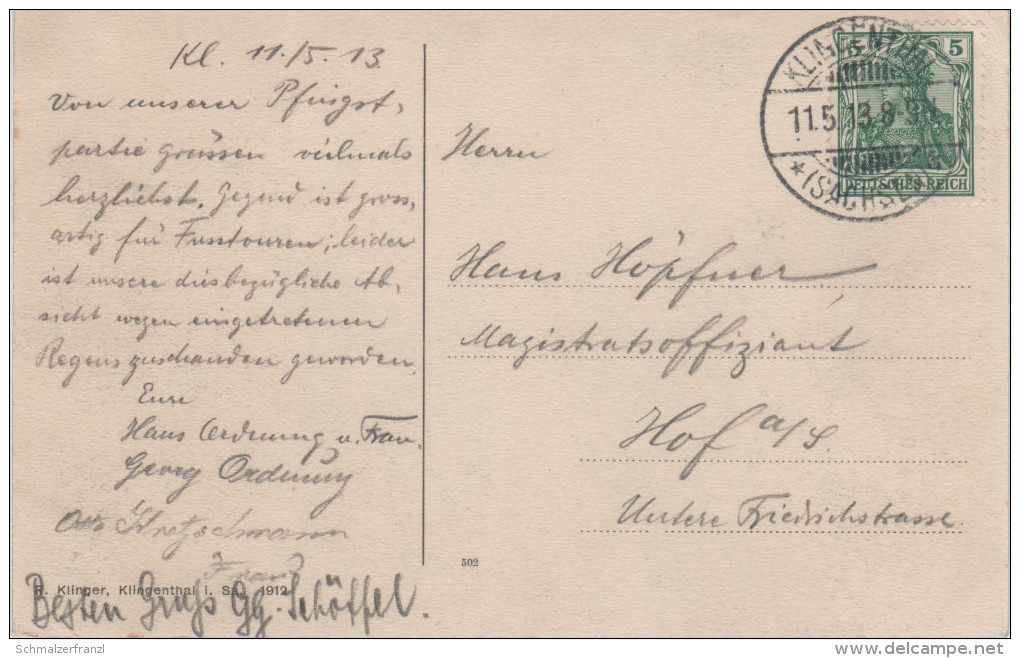 Kl. 11./5. 13
Von unserer Pfingst,
partie grüssen vielmals
herzlichst. Gegend ist gross,
artig für Fusstouren; leider
ist unsere diesbezügliche Ab,
sicht wegen eingetretenen
Regens zuschanden geworden.
Eure
Hans Ordnung u. Frau.
Georg Ordnung
Otto Kretschmann
Frau
R. Klinger, Klingenthal i. Sa. 1912
Besten Gruß Gg. Schöffel.
502
KLINGENTHAL
11.5.13.8-9N.
*(SACHSEN) a
5 5
DEUTSCHES REICH
Herrn
Hans Höpfner,
Magistratsoffiziant
Hof a/S.
Untere Friedrichstrasse.
Schmalzerfranzl
DELCAMPE.NET